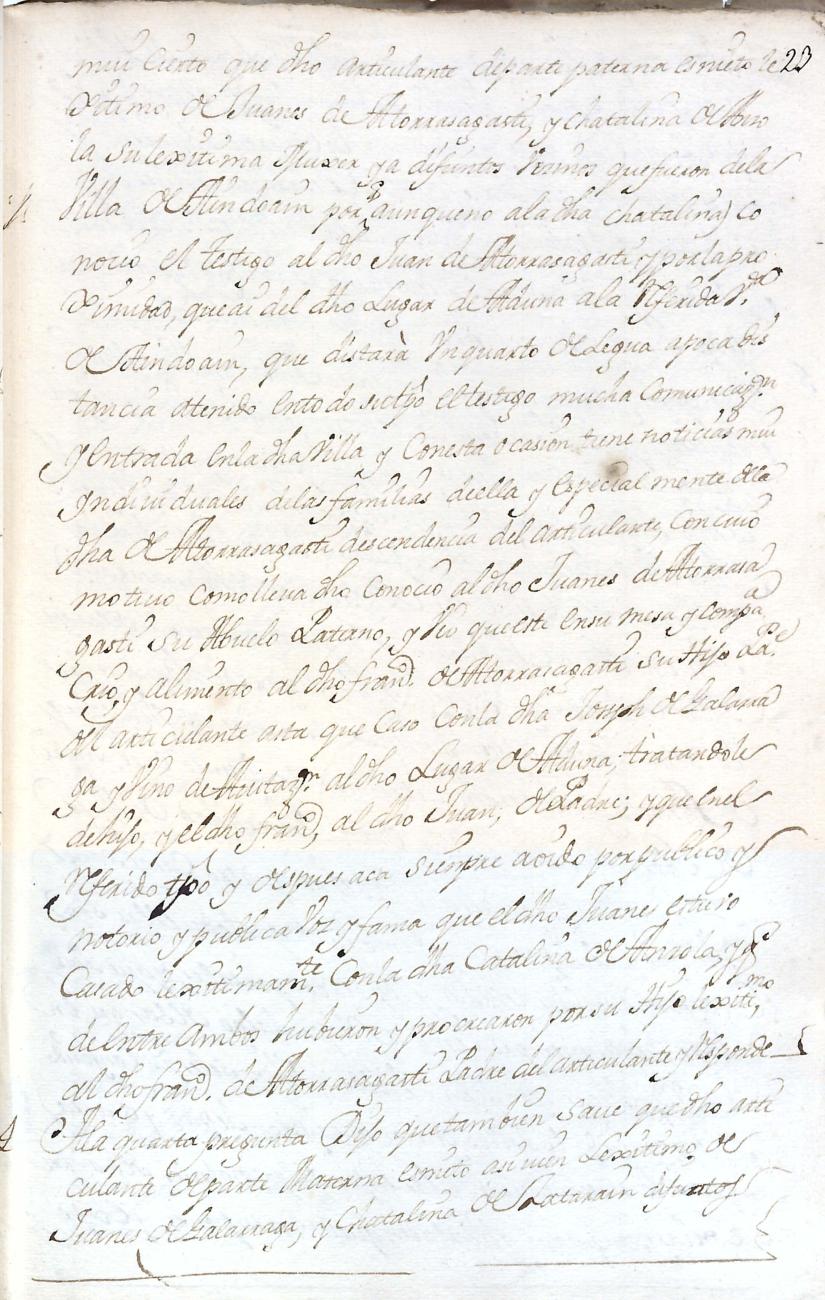 23
muy cierto que dho articulante de parte paterna es nieto le
xitimo de Juanes de Atorrasagasti, y Chatalina de Anro
la su lexitima Muxer ya difuntos Vecinos que fueron de la
Villa de Aindoain por q aunque no a la dha Chatalina) co
nocio el testigo al dho Juan de Atorrasagasti y por la pro
ximidad, que ai del dho Lugar de Aduna a la Referida Va
de Aindoain, que distarà Un quarto de Legua a poca dis
tancia atenido en todo su tpo el testigo mucha Comunicazn
y entrada en la dha Villa y Con esta ocasion tiene noticias mui
Yndividuales de las familias de ella y especialmente de la
dha de Atorrasagasti descendencia del articulante, Con cuio
motivo como lleva dho Conocio al dho Juanes de Atorrasa
gasti su Abuelo Paterno, y Vio que este en su mesa y compa
Crio, y alimento al dho franco. de Atorrasagasti su Hijo Pae
del articulante asta que Caso Con la dha Joseph de Galarra
ga y Vino de Avitazn al dho Lugar de Aduna, tratandole
de hijo, y el dho franco, al dho Juan, de Padre; y que en el
Referido tpo y despues aca siempre a oido por publico y
notorio y publica Voz y fama que el dho Juanes estuvo
Casado lexitimamte. Con la dha Catalina de Anrola, y q
de entre ambos hubieron y procrearon por su Hijo lexitimo
al dho franco. de Atorrasagasti Padre del articulante y Responde
4 A la quarta pregunta Dijo que tambien save que dho arti
culante de parte Materna es nieto asi vien Lexitimo de
Juanes de Galarraga, y Chatalina de Latarain difuntos